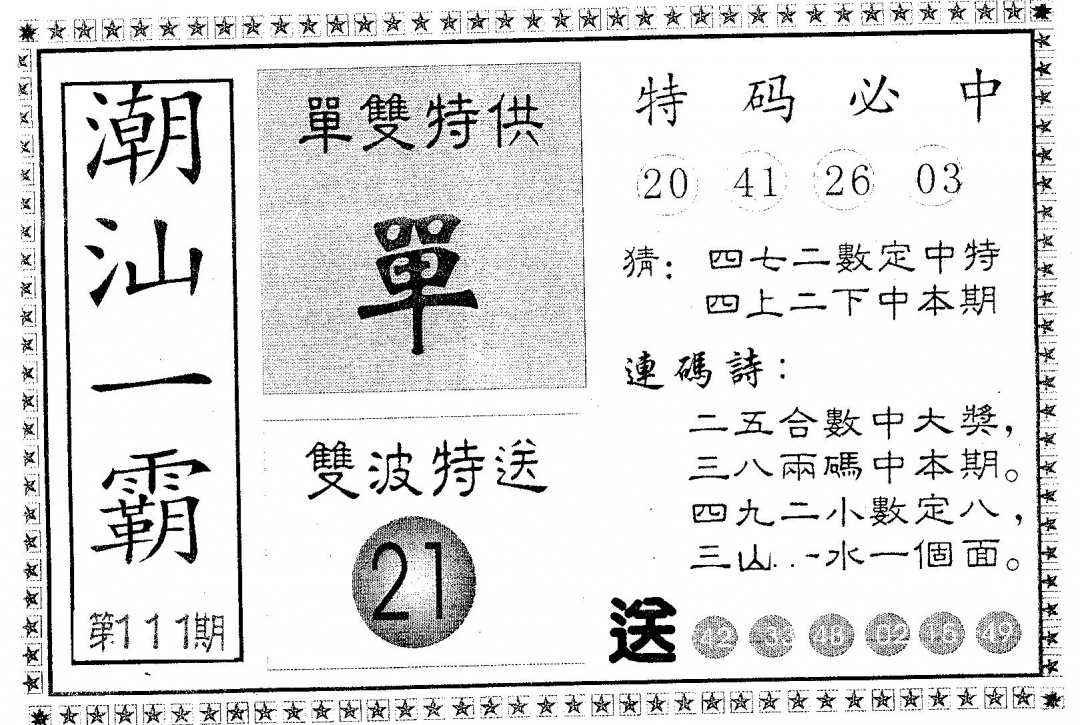 潮汕一霸
第111期
單雙特供
單
雙波特送
21
特码必中
20 41 26 03
猜：四七二數定中特
四上二下中本期
連碼詩：
二五合數中大獎，
三八兩碼中本期。
四九二小數定八，
三山..一水一個面。
送 42 33 48 02 16 49